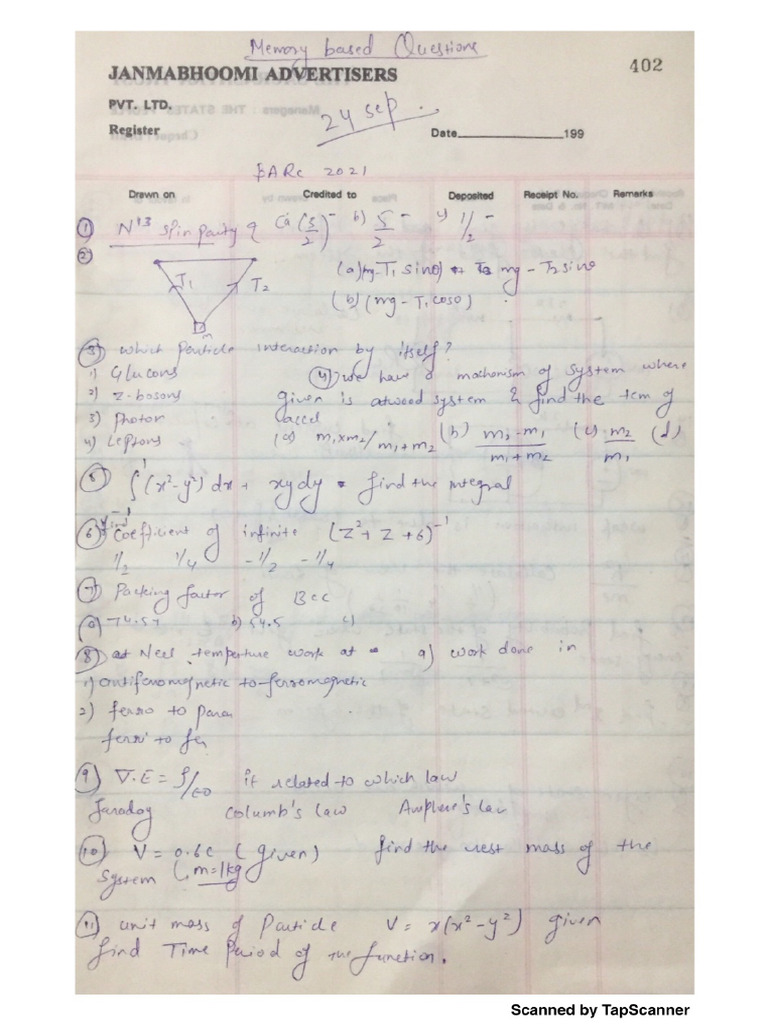 Memory based Questions
JANMABHOOMI ADVERTISERS
402
PVT. LTD.
Register
24 sep.
Date 199
BARC 2021
Drawn on Credited to Deposited Receipt No. Remarks
① N¹³ spin parity (5/2)⁻ b) 5/2⁻ c) 1/2⁻
②
T₁ T₂
m
mg - T₂ sinθ
(b) (mg - T₁ cosθ)
③ which Particle interaction by itself?
1) Glucons
2) Z-bosons
3) Photon
4) Leptons
④ we have a mechanism of system where
given is atwood system & find the term of
accel
(a) m₁xm₂/m₁+m₂ (b) m₂-m₁/m₁+m₂ (c) m₂/m₁ (d)
⑤ ∫¹ (x²-y²) dx + xydy find the integral
-1
⑥ Coefficient of infinite (z²+z+6)⁻¹
1/2 1/4 -1/2 -1/4
⑦ Packing factor of Bcc
b) 54.5 c)
⑧ at Neel temperture work at a) work done in
1) antiferomagnetic to ferromagnetic
2) ferro to para
ferri to fe
⑨ ∇.E = ρ/ε0 it related to which law
Faraday Columb's law Amphere's law
⑩ V = 0.6c (given) find the rest mass of the
system m=1kg
⑪ unit mass of Particle V = x(x²-y²) given
find Time Period of the function.
Scanned by TapScanner